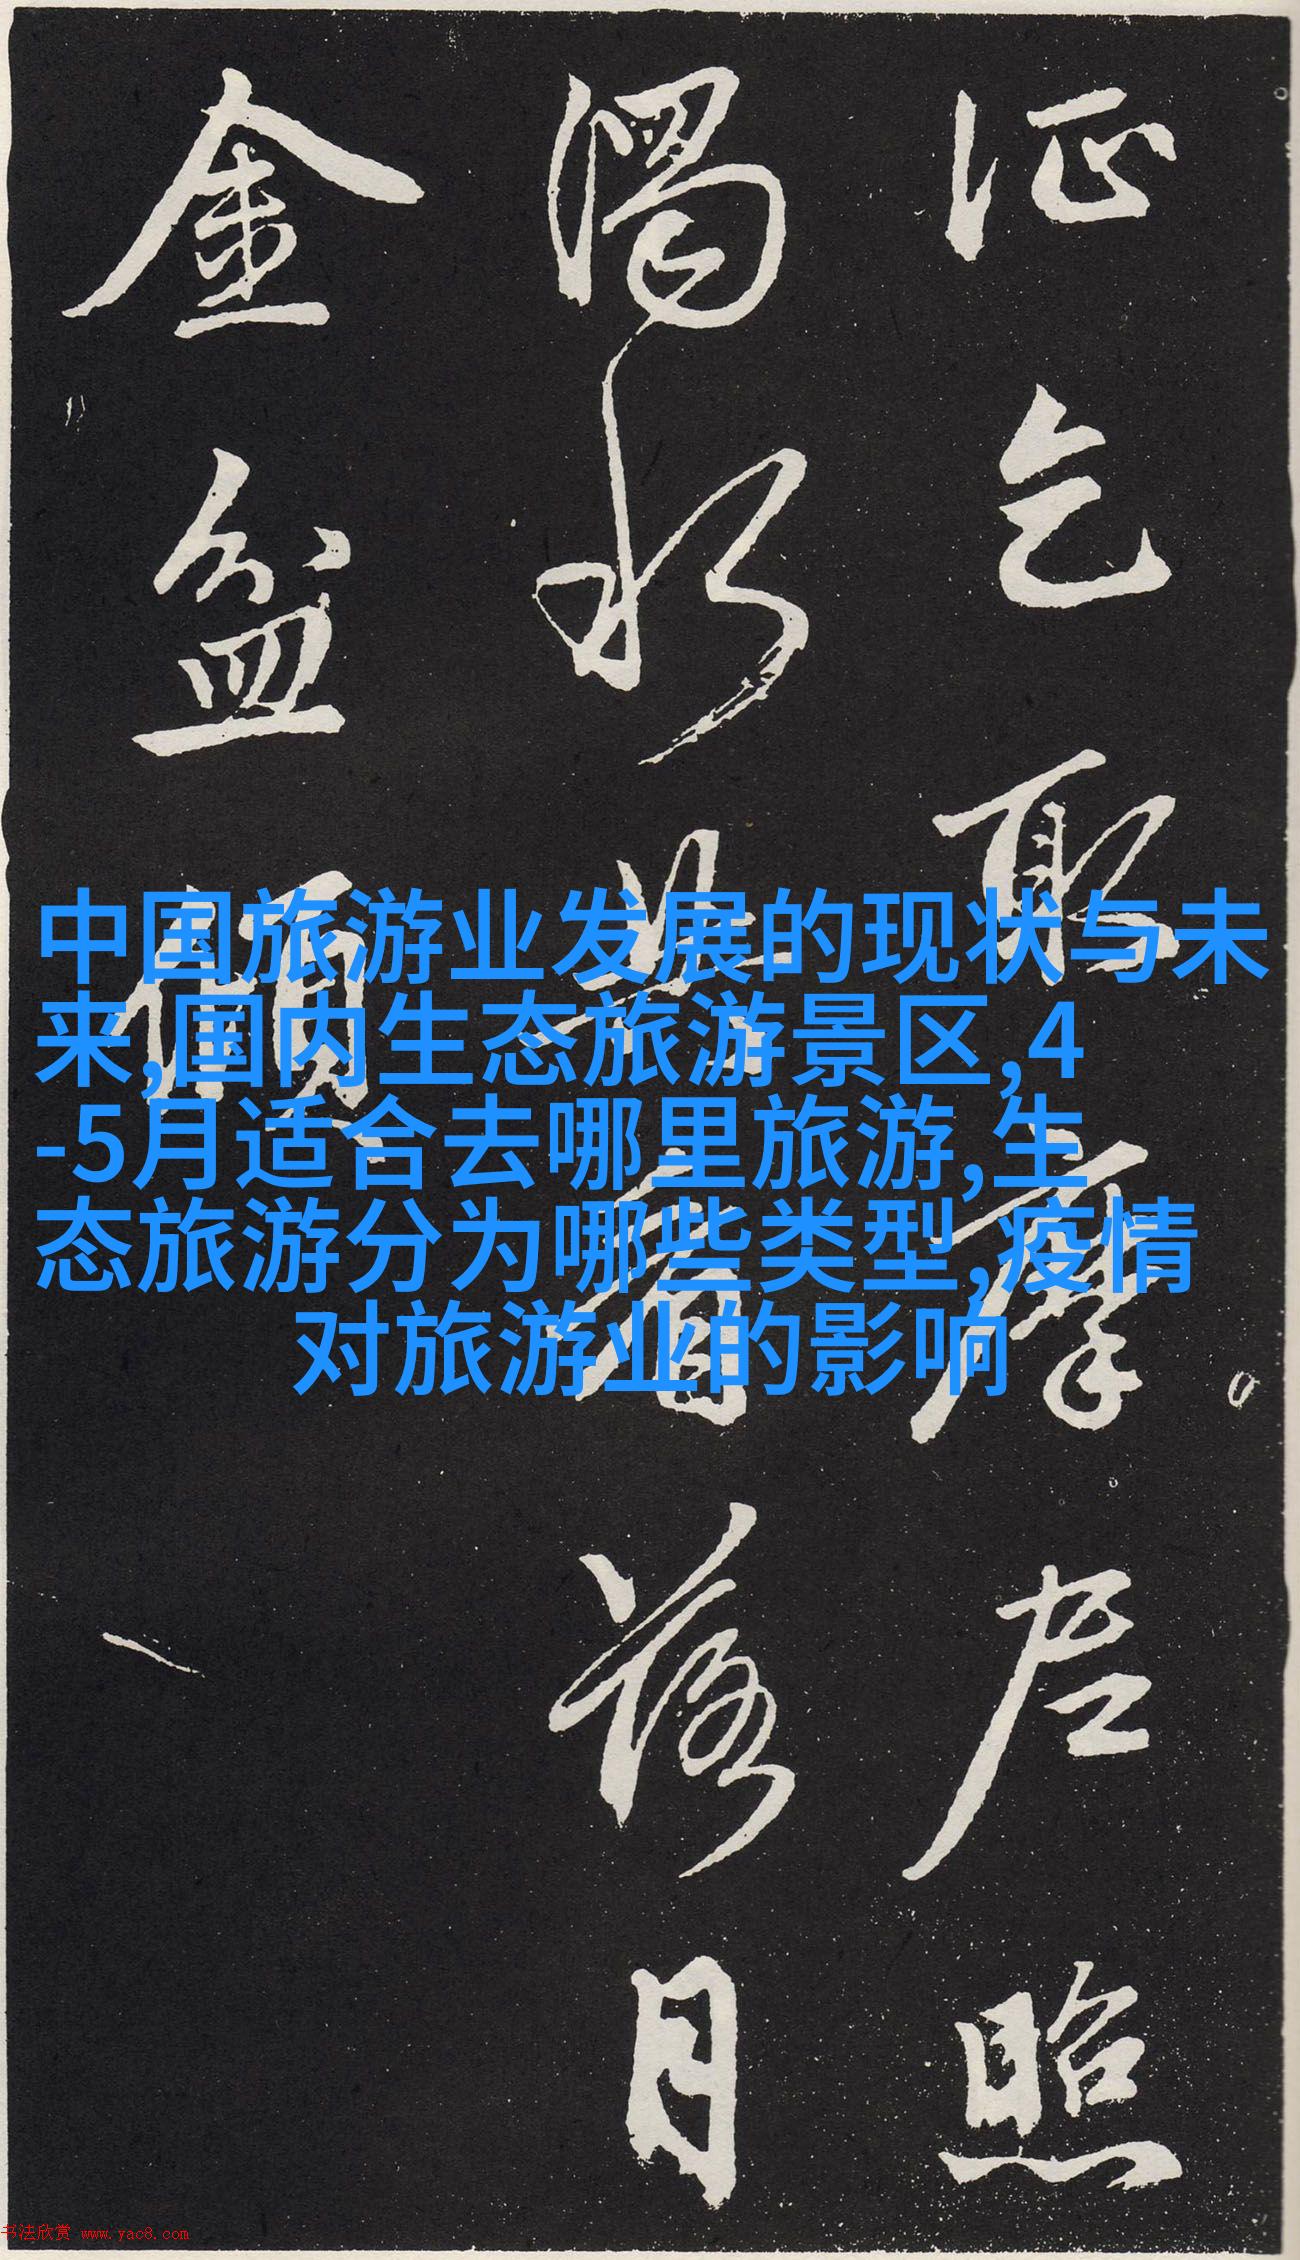 证乞取摩尼照
濁水共看落月
金盆傾
中国旅游业发展的现状与未
来,国内生态旅游景区,4
-5月适合去哪里旅游,生
态旅游分为哪些类型,疫情
对旅游业的影响
书法欣赏 www.yac8.com